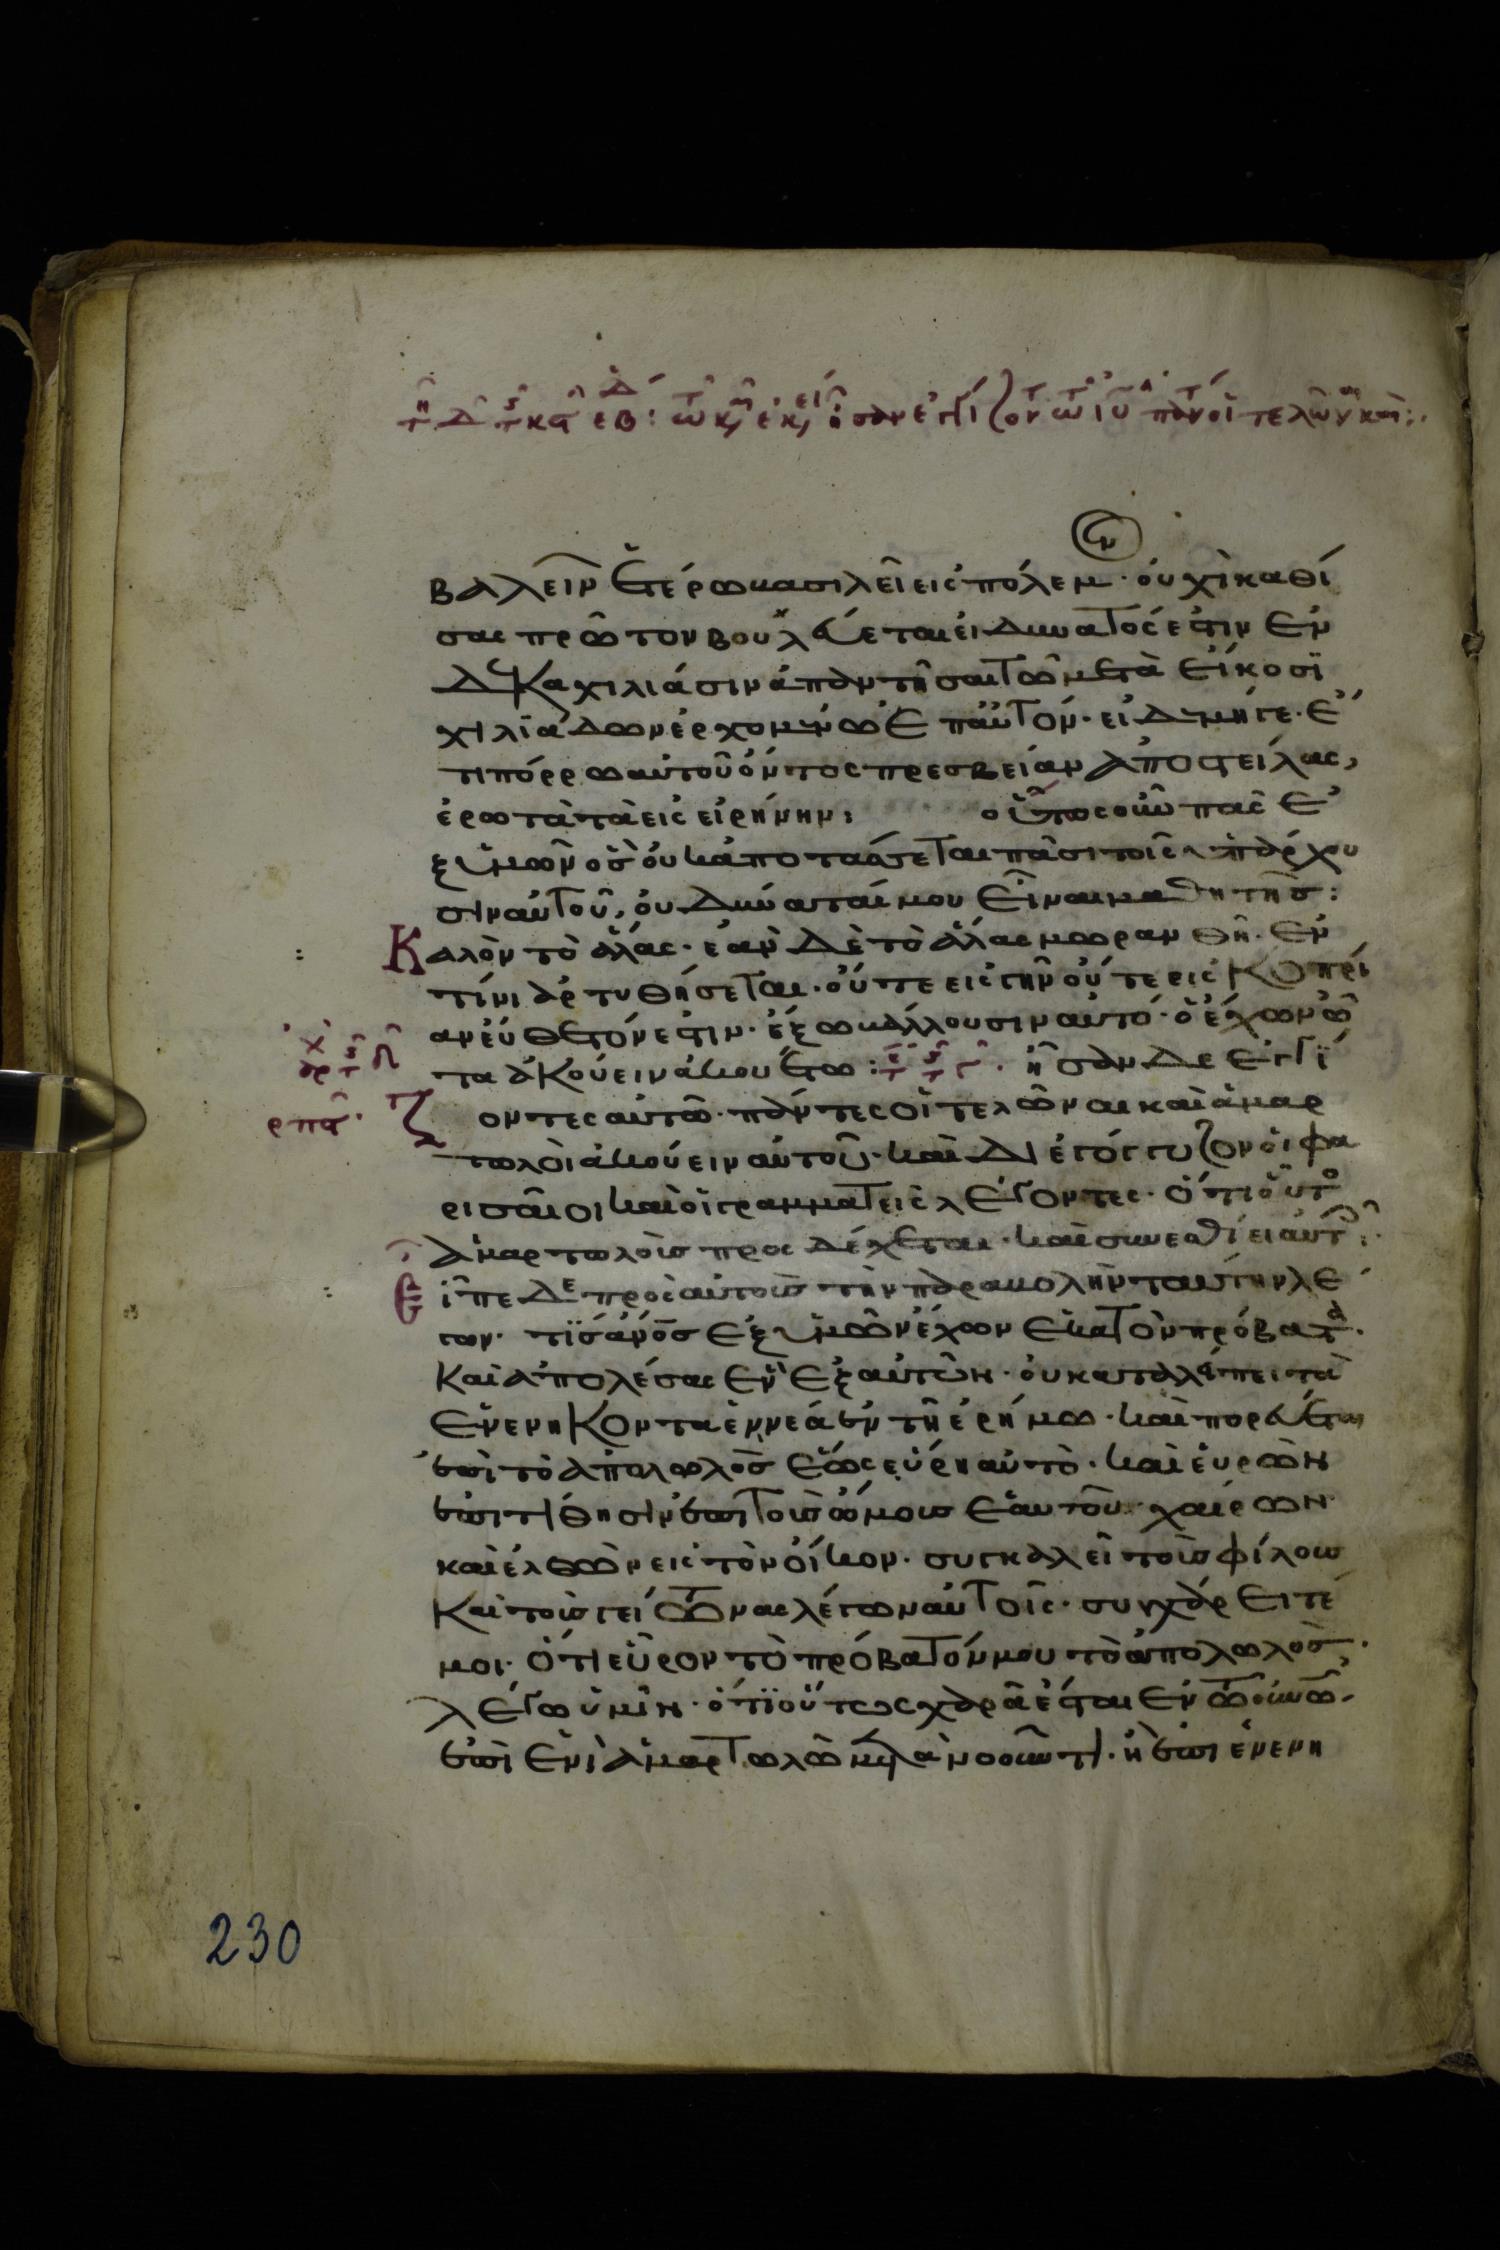 βαλεῖν ἑτέρω βασιλεῖ εἰς πόλεμον· οὐχὶ καθί
σας πρῶτον βουλεύεται εἰ δυνατός ἐστιν ἐν
δέκα χιλιάσιν ἀπαντῆσαι τῶ μετὰ εἴκοσϊ
χιλϊάδων ἐρχομένω ἐπ αὐτόν· εἰ δὲ μήγε· ἔ
τι πόρρω αὐτοῦ ὄντος πρεσβείαν ἀποστείλας,
ἐρωτᾶ τὰ εἰς εἰρήνην: οὕτως οὖν πᾶς ἐ
ξ ὑμῶν ὃς οὐκ ἀποτάσσεται πᾶσι τοῖς ὑπάρχου
σιν αὐτοῦ, οὐ δύναταί μου εἶναι μαθητής:
Καλὸν τὸ ἅλας· ἐὰν δὲ τὸ ἅλας μωρανθῆ· ἐν
τίνι ἀρτυθήσεται· οὔτε εἰς γῆν οὔτε εἰς κοπρί
αν εὔθετόν ἐστιν· ἔξω βάλλουσιν αὐτό· ὁ ἔχων ὦ
τα ἀκούειν ἀκουέτω: ἦσαν δὲ ἐγγί
ζοντες αὐτῶ· πάντες οἱ τελῶναι καὶ ἁμαρ
τωλοὶ ἀκούειν αὐτοῦ· καὶ διεγόγγυζον οἱ φα
ρισαῖοι καὶ οἱ γραμματεῖς λέγοντες· ὅτι οὗτο
ἁμαρτωλοὺς προσδέχεται· καὶ συνεσθίει αὐτ:
Εἶπε δὲ πρὸς αὐτοὺς τὴν παραβολὴν ταύτην λέ
γων· τίς ἄνος ἐξ ὑμῶν ἔχων ἑκατὸν πρόβατα·
καὶ ἀπολέσας ἓν ἐξ αὐτῶν· οὐ καταλείπει τὰ
ἐνενηκονταεννέα ἐν τῆ ἐρήμω· καὶ πορεύεται
ἐπὶ τὸ ἀπολωλὸς ἕως εὕρη αὐτό· καὶ εὑρὼν
ἐπιτίθησιν ἐπὶ τοὺς ὤμους ἑαυτοῦ χαίρων·
καὶ ἐλθὼν εἰς τὸν οἶκον· συγκαλεῖ τοὺς φίλους
καὶ τοὺς γείτονας λέγων αὐτοῖς· συγχάρειτέ
μοι· ὅτι εὗρον τὸ πρόβατόν μου τὸ ἀπολωλός·
λέγω ὑμῖν· ὅτϊ οὕτως χαρὰ ἔσται ἐν τῶ οὐνῶ·
ἐπὶ ἑνὶ ἁμαρτωλῶ μετανοοῦντι· ἢ ἐπὶ ἐνενη
230